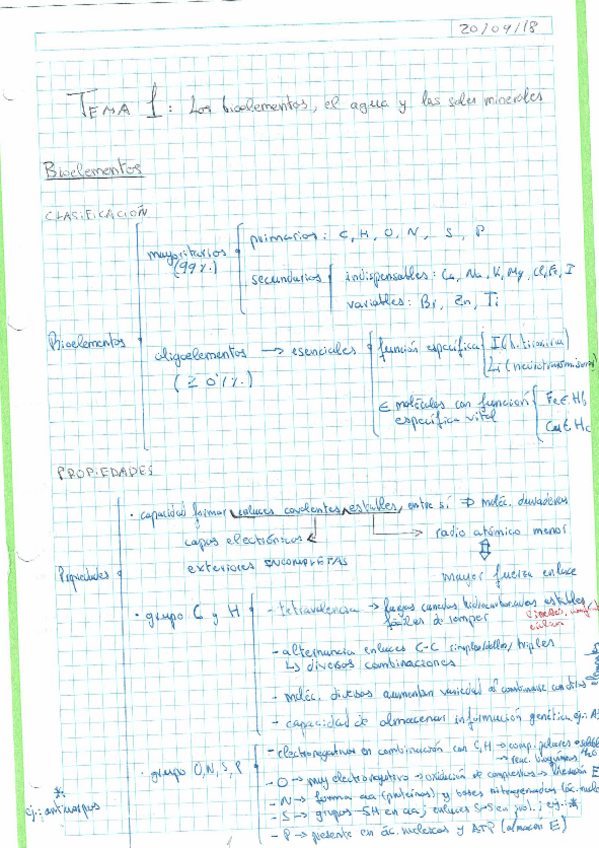 20/09/18
TEMA 1: Los bioelementos, el agua y las sales minerales
Bioelementos
CLASIFICACIÓN
Bioelementos
mayoritarios
(99%)
primarios: C, H, O, N, S, P
secundarios
indispensables: Ca, Na, K, Mg, Cl, Fe, I
variables: Br, Zn, Ti
oligoelementos → esenciales
(≥ 0'1%)
función específica
I (h. tiroxina)
Li (neurotransmisores)
∈ moléculas con función
específica vital
Fe ∈ Hb
Cu ∈ Hc
PROPIEDADES
Propiedades
· capacidad formar enlaces covalentes estables, entre sí ⇒ moléc. duraderas
capas electrónicas
exteriores INCOMPLETAS
→ radio atómico menor
mayor fuerza enlace
· grupo C y H
- tetravalencia → largas cadenas hidrocarbonadas estables
fáciles de romper
lineales,
- alternancia enlaces C-C simples/dobles/triples
↳ diversas combinaciones
- moléc. diversas aumentan variedad al combinarse con otros
- capacidad de almacenar información genética, ej:
· grupo O, N, S, P
- electronegativos en combinación con C, H → comp. polares
→ reac. bioquímicas
- O → muy electronegativo → oxidación de compuestos → liberación E
- N → forma aa (proteínas) y bases nitrogenadas (ác. nucl
- S → grupos -SH en aa; enlaces S-S en prot.; ej: *
- P → presente en ác. nucleicos y ATP (almacén E)
*
ej: anticuerpos